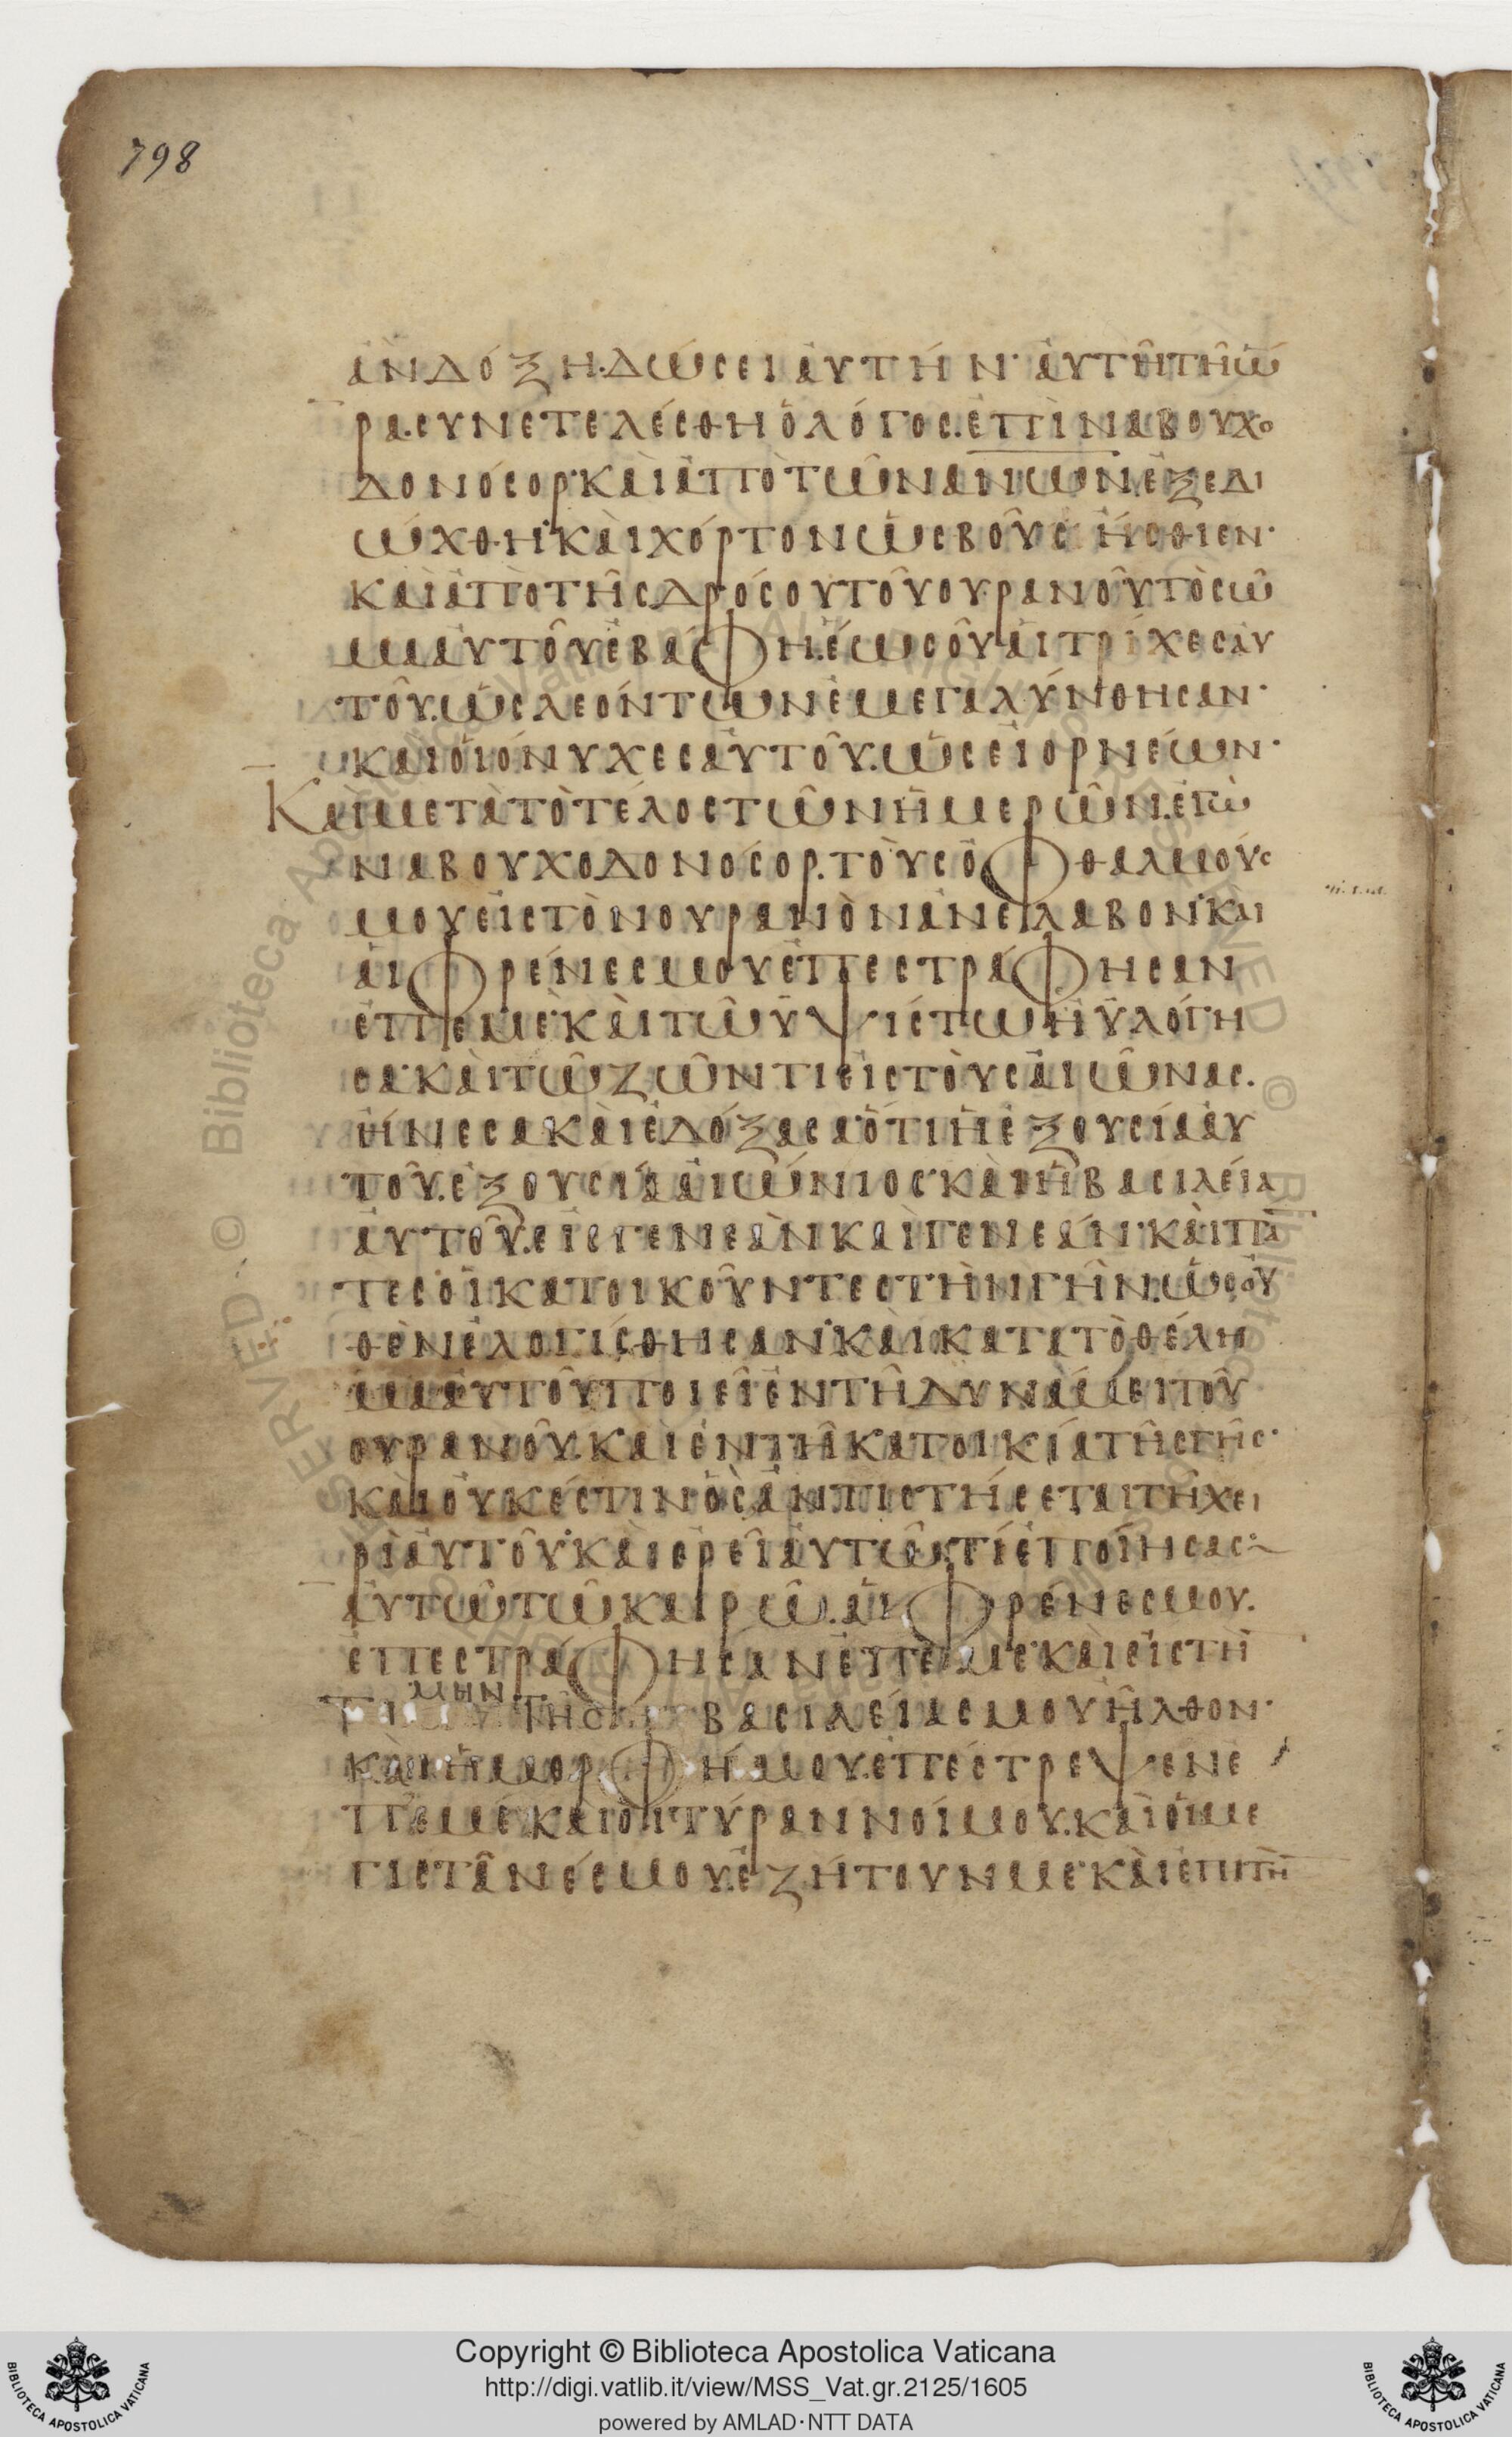 798
ἀν δόξη· δώσει αὐτήν· αὐτῆ τῆ ὥ
ρα. συνετελέσθη ὁ λόγος. ἐπὶ ναβουχο
δονόσορ· καὶ ἀπὸ τῶν ανων ἐξεδι
ώχθη· καὶ χόρτον ὡς βοῦς ἤσθιεν·
καὶ ἀπὸ τῆς δρόσου τοῦ ουρανοῦ τὸ σῶ
μα αὐτοῦ ἐβάφη. ἕως οὗ αἱ τρίχες αὐ
τοῦ. ὡς λεόντων ἐμεγαλύνθησαν·
καὶ οἱ ὄνυχες αὐτοῦ. ὡσεὶ ορνέων·
Καὶ μετὰ τὸ τέλος τῶν ἡμερῶν. ἐγὼ
ναβουχοδονόσορ. τοὺς ὀφθαλμούς
μου εἰς τὸν ουρανὸν ἀνέλαβον· καὶ
αἱ φρένες μου ἐπεστράφησαν
ἐπ' ἐμέ· καὶ τῶ ὑψίστω ηὐλόγη
σα· καὶ τῶ ζῶντι εἰς τοὺς αἰῶνας.
ἤνεσα καὶ ἐδόξασα· ὅτι ἡ ἐξουσία αὐ
τοῦ. ἐξουσία αἰώνιος· καὶ ἡ βασιλεία
αὐτοῦ. εἰς γενεὰν καὶ γενεάν· καὶ πά
τες οἱ κατοικοῦντες τὴν γῆν. ὡς οὐ
θὲν ἐλογίσθησαν· καὶ κατα τὸ θέλη
μα αὐτοῦ ποιεῖ ἐν τῆ δυνάμει τοῦ
ουρανοῦ. καὶ ἐν τῆ κατοικία τῆς γῆς·
καὶ οὐκ έστιν ὃς ἀντιστήσεται τῆ χει
ρὶ αὐτοῦ· καὶ ἐρεῖ αὐτῶ· τί ἐποίησας·
αὐτῶ τῶ καιρῶ. αἱ φρένες μου.
ἐπεστράφησαν ἐπ' ἐμέ· καὶ εἰς τὴ
μὴν
τι τῆς βασιλείας μου ἦλθον·
καὶ ἡ μορφή μου. ἐπέστρεψεν ἐ
π' ἐμέ. καὶ οἱ τύραννοί μου. καὶ οἱ με
γιστᾶνές μου. ἐζήτουν με· καὶ ἐπὶ τὴ
Copyright © Biblioteca Apostolica Vaticana
http://digi.vatlib.it/view/MSS_Vat.gr.2125/1605
powered by AMLAD·NTT DATA
BIBLIOTECA APOSTOLICA VATICANA
BIBLIOTECA APOSTOLICA VATICANA